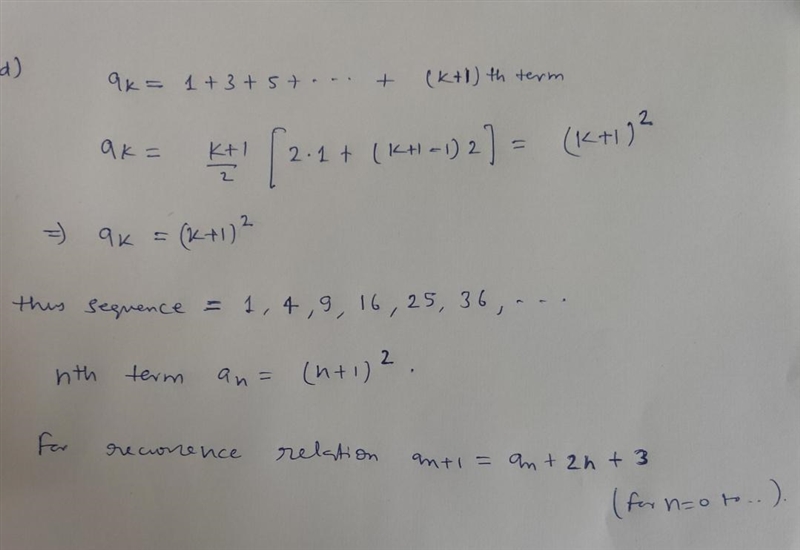 d) aₖ = 1 + 3 + 5 + ··· + (k+1) th term
aₖ = (k+1)/2 [2·1 + (k+1-1) 2] = (k+1)²
⇒ aₖ = (k+1)²
thus sequence = 1, 4, 9, 16, 25, 36, ···
nth term aₙ = (n+1)².
For recurrence relation aₙ₊₁ = aₙ + 2n + 3
(for n=0 to ..).